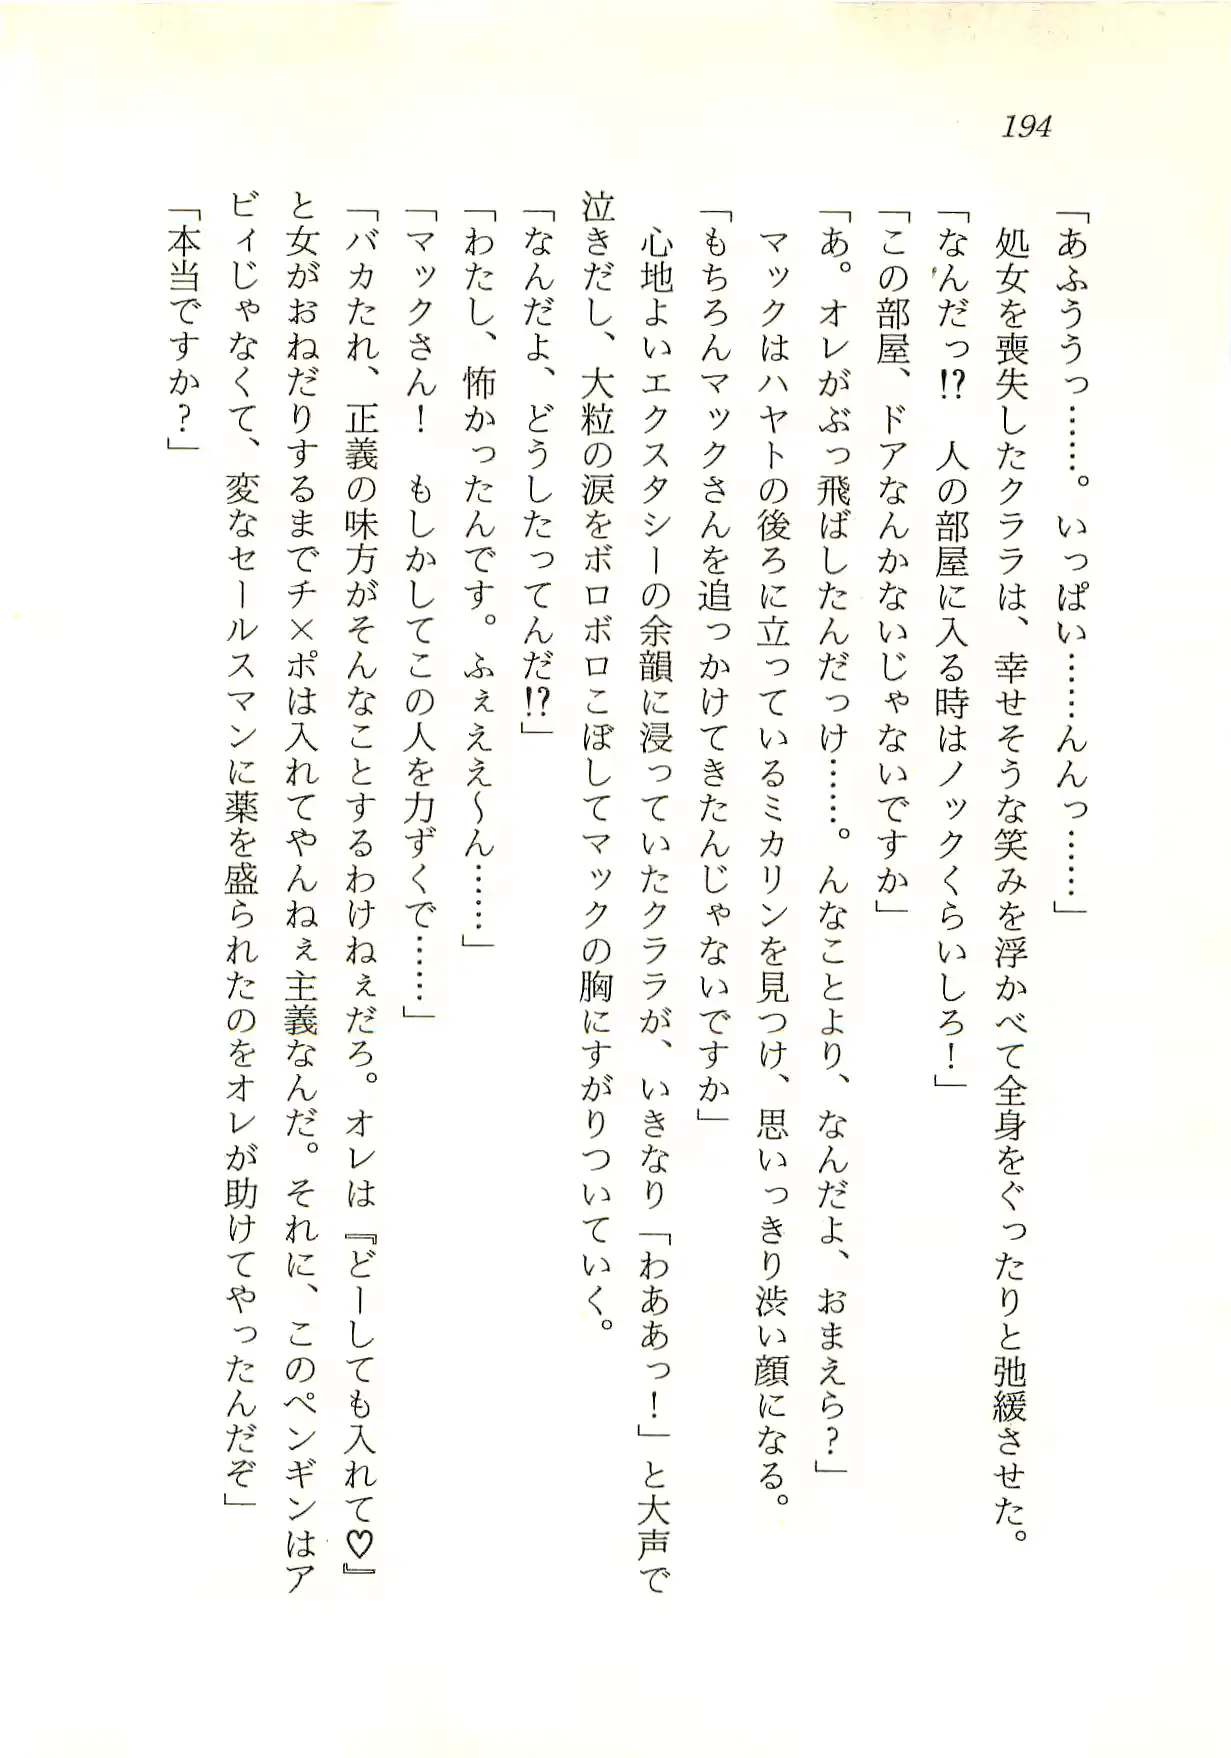 194
「あふううっ……。いっぱい……んんっ……」
　処女を喪失したクララは、幸せそうな笑みを浮かべて全身をぐったりと弛緩させた。
「なんだっ!?　人の部屋に入る時はノックくらいしろ！」
「この部屋、ドアなんかないじゃないですか」
「あ。オレがぶっ飛ばしたんだっけ……。んなことより、なんだよ、おまえら？」
　マックはハヤトの後ろに立っているミカリンを見つけ、思いっきり渋い顔になる。
「もちろんマックさんを追っかけてきたんじゃないですか」
　心地よいエクスタシーの余韻に浸っていたクララが、いきなり「わああっ！」と大声で
泣きだし、大粒の涙をボロボロこぼしてマックの胸にすがりついていく。
「なんだよ、どうしたってんだ!?」
「わたし、怖かったんです。ふぇええ〜ん……」
「マックさん！　もしかしてこの人を力ずくで……」
「バカたれ、正義の味方がそんなことするわけねぇだろ。オレは『どーしても入れて♡』
と女がおねだりするまでチ×ポは入れてやんねぇ主義なんだ。それに、このペンギンはア
ビィじゃなくて、変なセールスマンに薬を盛られたのをオレが助けてやったんだぞ」
「本当ですか？」